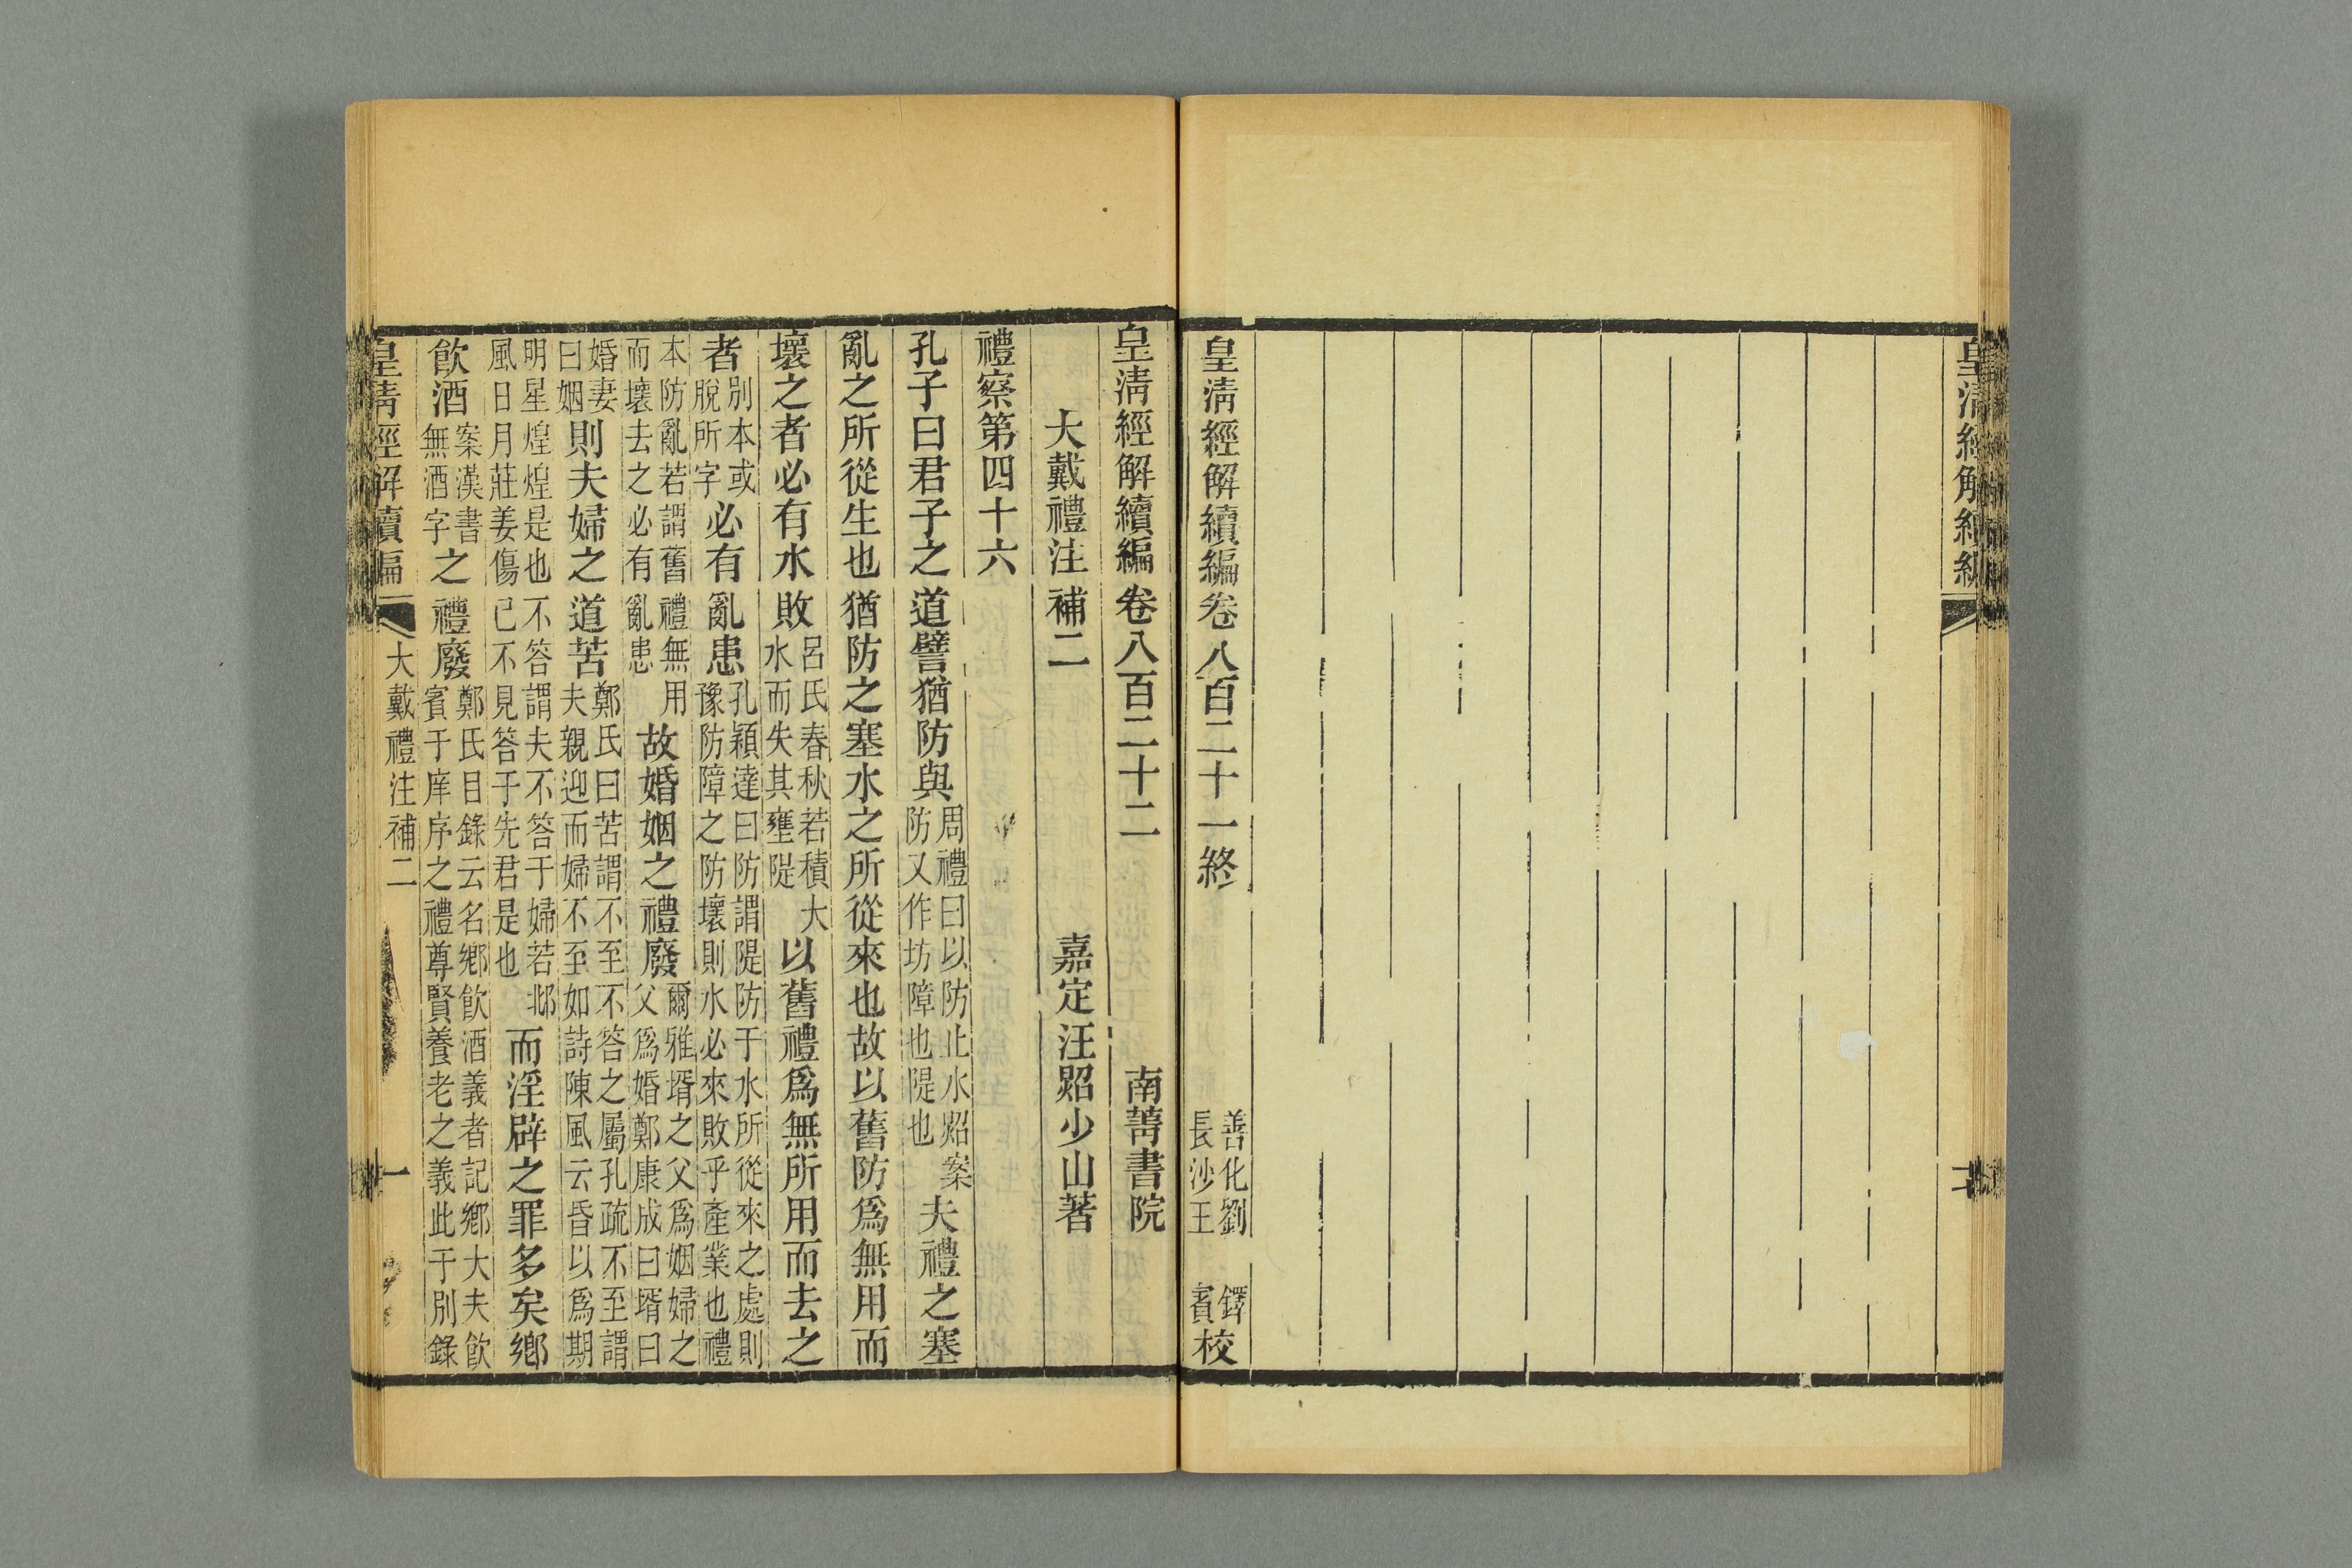 皇清經解續編
二
皇清經解續編卷八百二十一終
善化劉鐸
長沙王賓校
皇清經解續編卷八百二十二
南菁書院
大戴禮注補二
嘉定汪照少山著
禮察第四十六
孔子曰君子之道譬猶防與周禮曰以防止水照案防又作坊障也隄也夫禮之塞
亂之所從生也猶防之塞水之所從來也故以舊防爲無用而
壞之者必有水敗呂氏春秋若積大水而失其壅隄以舊禮爲無所用而去之
者別本或脫所字必有亂患孔穎達曰防謂隄防于水所從來之處則豫防障之防壞則水必來敗乎產業也禮
本防亂若謂舊禮無用而壞去之必有亂患故婚姻之禮廢爾雅壻之父爲姻婦之父爲婚鄭康成曰壻曰
婚妻曰姻則夫婦之道苦鄭氏曰苦謂不至不答之屬孔疏不至謂夫親迎而婦不至如詩陳風云昏以爲期
明星煌煌是也不答謂夫不答于婦若邶風日月莊姜傷已不見答于先君是也而淫辟之罪多矣鄉
飲酒案漢書無酒字之禮廢鄭氏目錄云名鄉飲酒義者記鄉大夫飲賓于庠序之禮尊賢養老之義此于別錄
皇清經解續編
大戴禮注補二
一